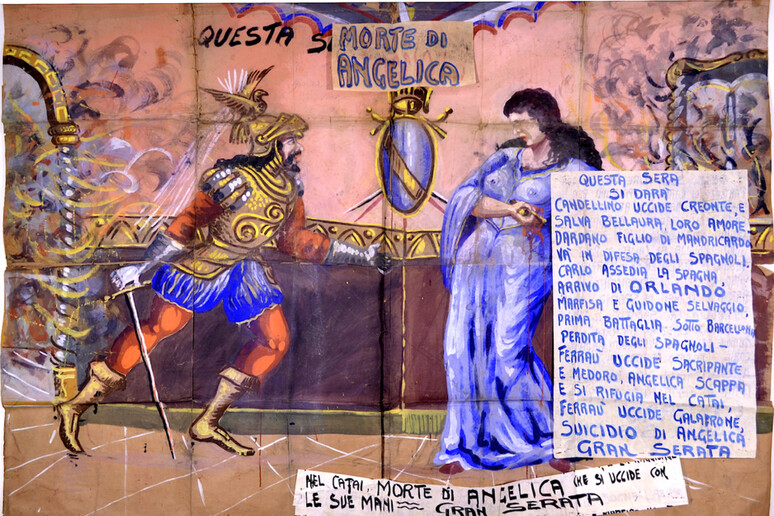 QUESTA S
MORTE DI
ANGELICA
QUESTA SERA
SI DARÀ
CANDELLINO UCCIDE CREONTE, E
SALVA BELLAURA, LORO AMORE,
DARDANO FIGLIO DI MANDRICARDO
VÀ IN DIFESA DEGLI SPAGNOLI.
CARLO ASSEDIA LA SPAGNA
ARRIVO DI ORLANDO
MARFISA E GUIDONE SELVAGGIO,
PRIMA BATTAGLIA SOTTO BARCELLONA
PERDITA DEGLI SPAGNOLI -
FERRAÙ UCCIDE SACRIPANTE
E MEDORO, ANGELICA SCAPPA
E SI RIFUGIA NEL CATAI,
FERRAÙ UCCIDE GALAFRONE,
SUICIDIO DI ANGELICA
GRAN SERATA
NEL CATAI, MORTE DI ANGELICA CHE SI UCCIDE CON
LE SUE MANI GRAN SERATA